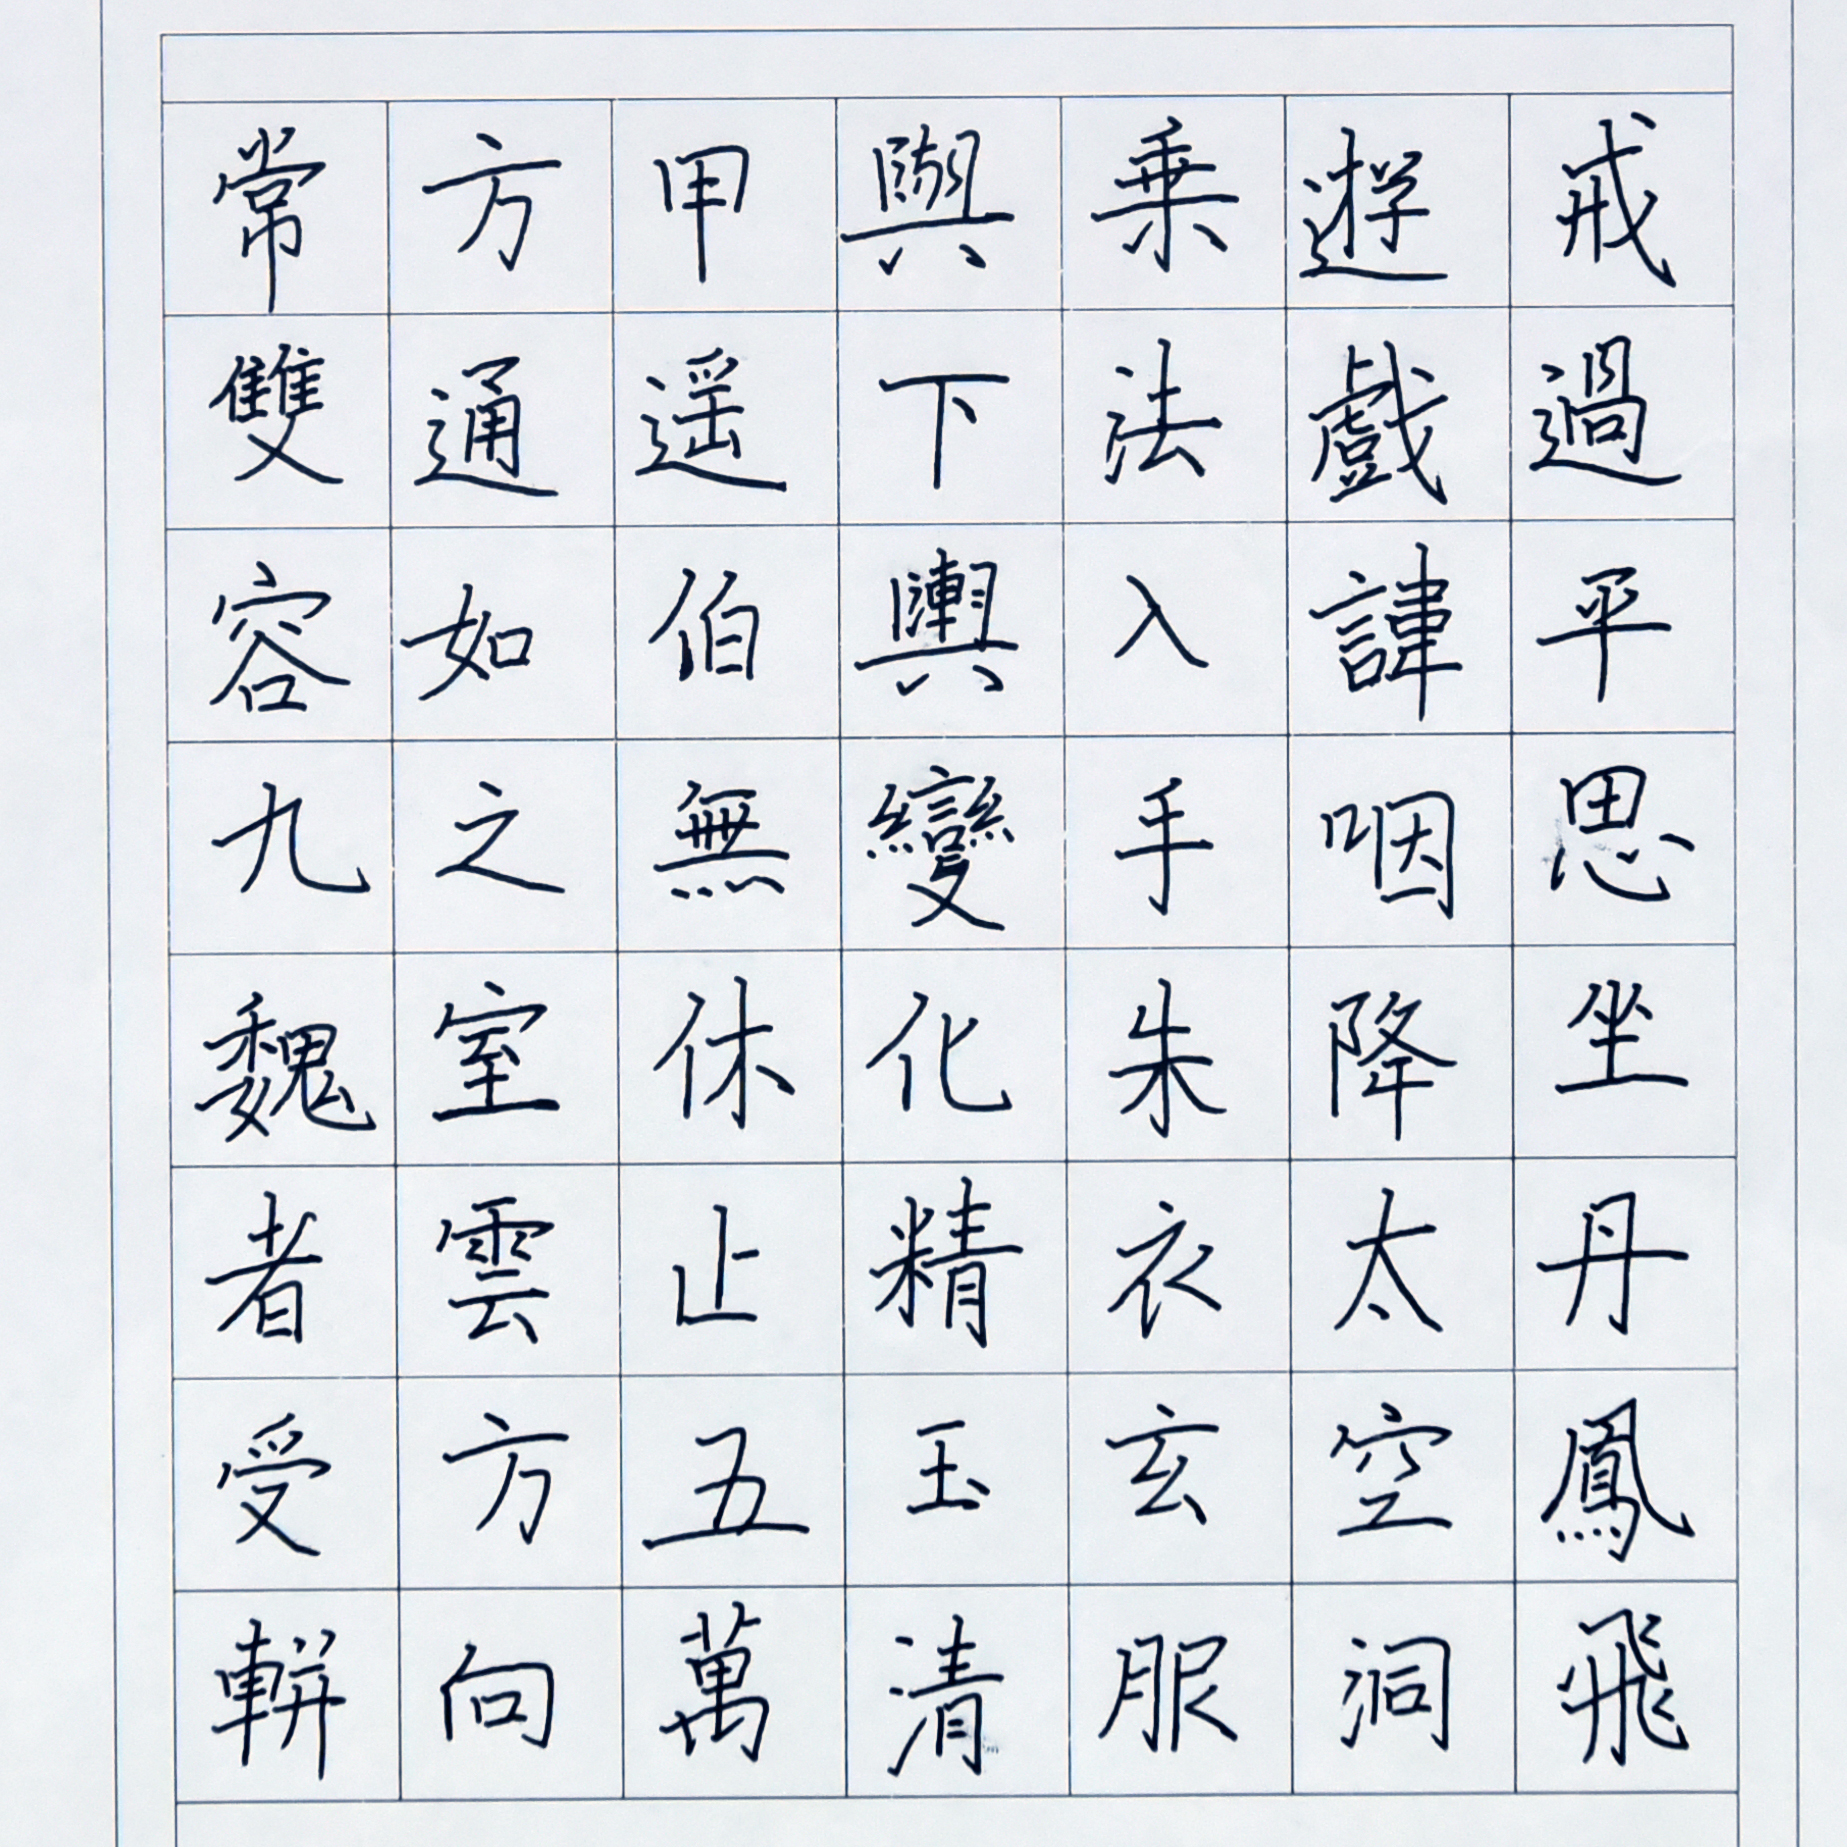 戒過平思坐丹鳳飛
遊戲諱咽降太空洞
乗法入手朱衣玄服
與下輿變化精玉清
甲遥伯無休止五萬
方通如之室雲方向
常雙容九魏者受軿